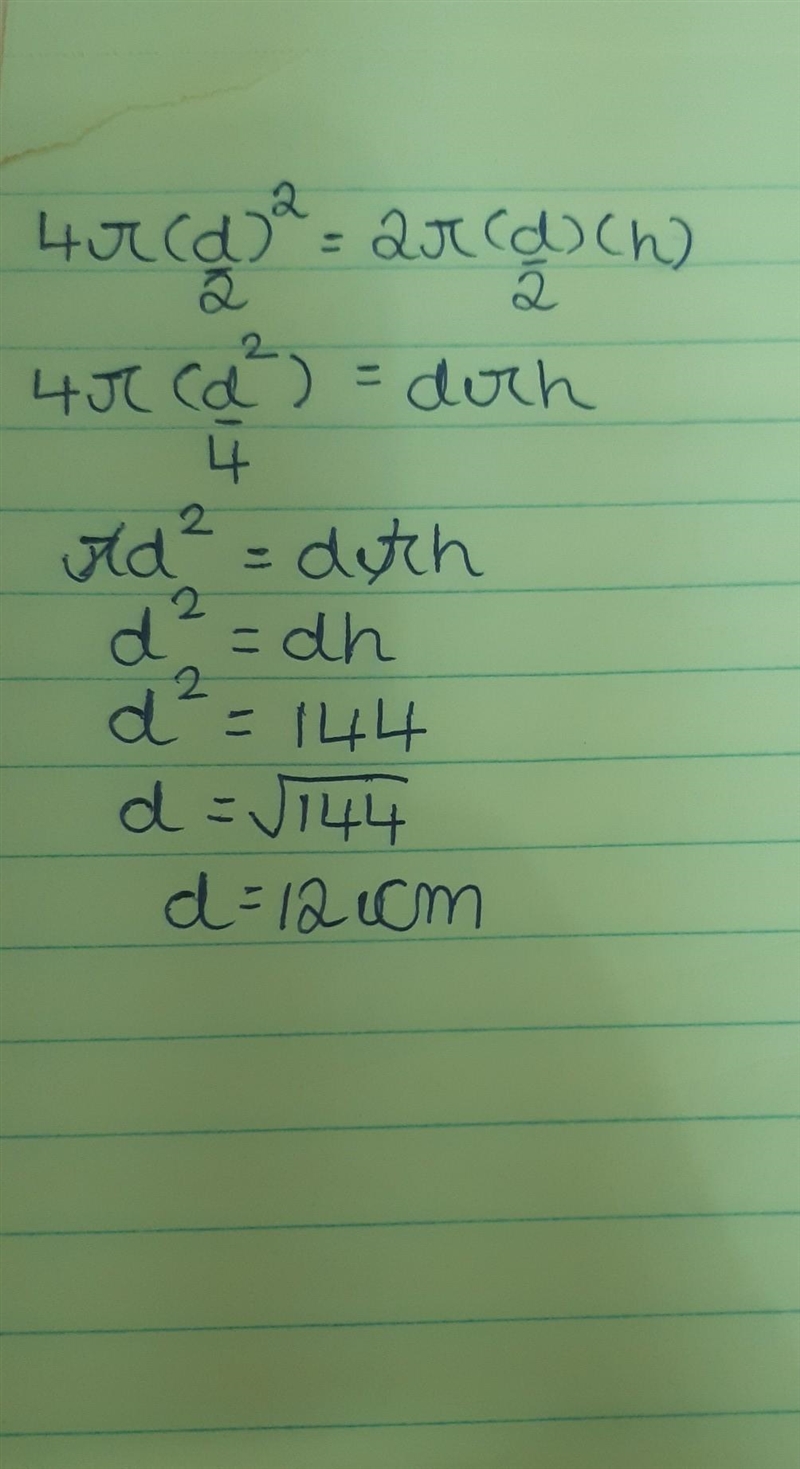 4π(d/2)² = 2π(d/2)(h)
4π(d²/4) = dπh
πd² = dπh
d² = dh
d² = 144
d = √144
d = 12 cm